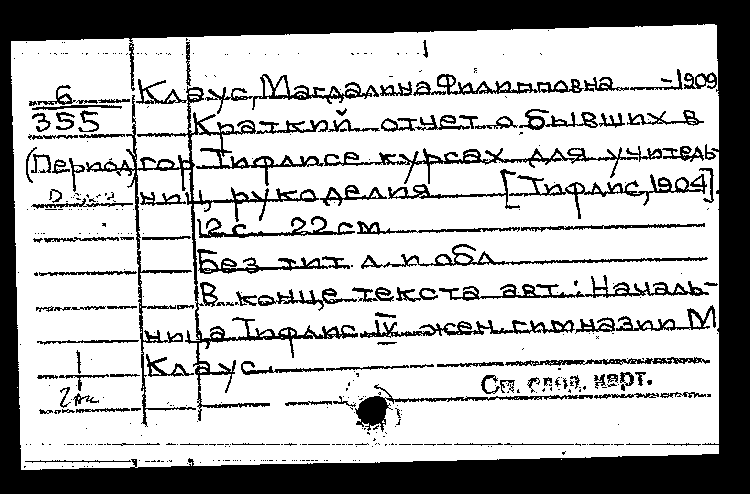 6 Клаус, Магдалина Филипповна -1909
355 Краткий отчет о бывших в
(Период) гор. Тифлисе курсах для учитель-
ниц рукоделия [Тифлис, 1904].
12 с. 22 см.
Без тит. л. и обл.
В конце текста авт.: Началь-
ница Тифлис. IV жен. гимназии М.
Клаус.
См. след. карт.